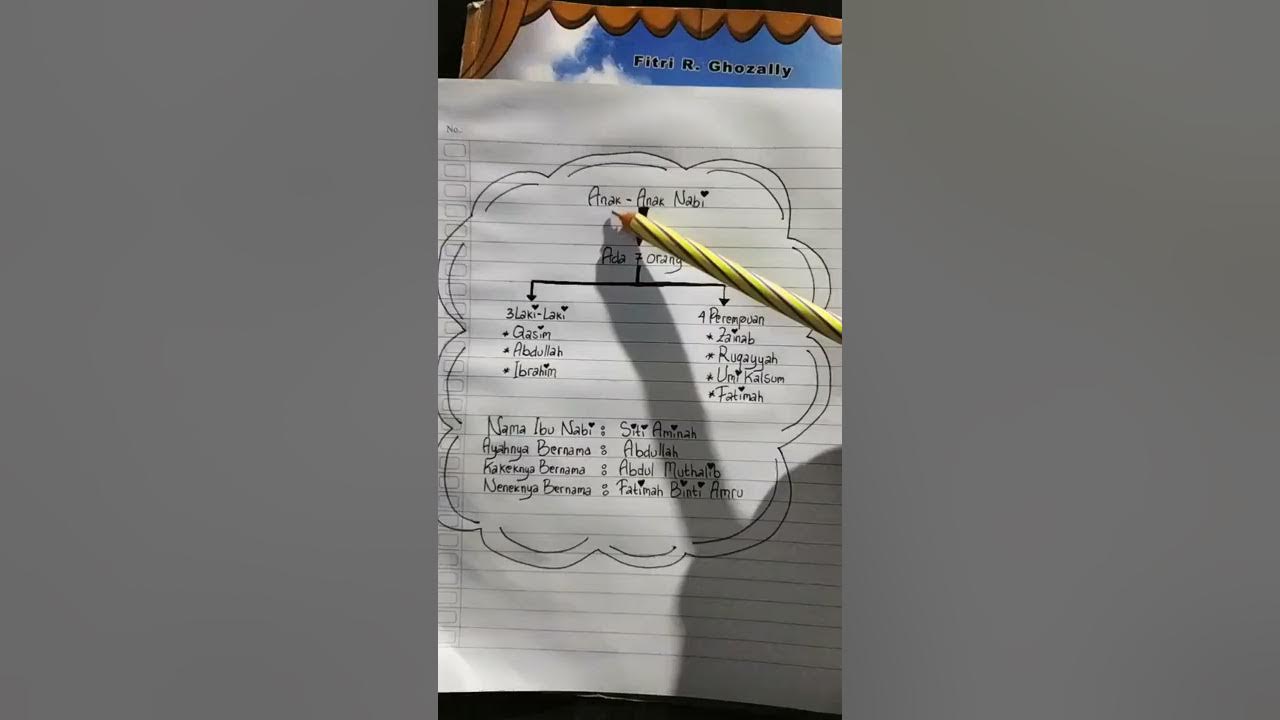 Fitri R. Ghozally
No.
Anak - Anak Nabi
Ada 7 orang
3 Laki-Laki
* Qasim
* Abdullah
* Ibrahim
4 Perempuan
* Zainab
* Ruqayyah
* Umi Kalsum
* Fatimah
Nama Ibu Nabi : Siti Aminah
Ayahnya Bernama : Abdullah
Kakeknya Bernama : Abdul Muthalib
Neneknya Bernama : Fatimah Binti Amru